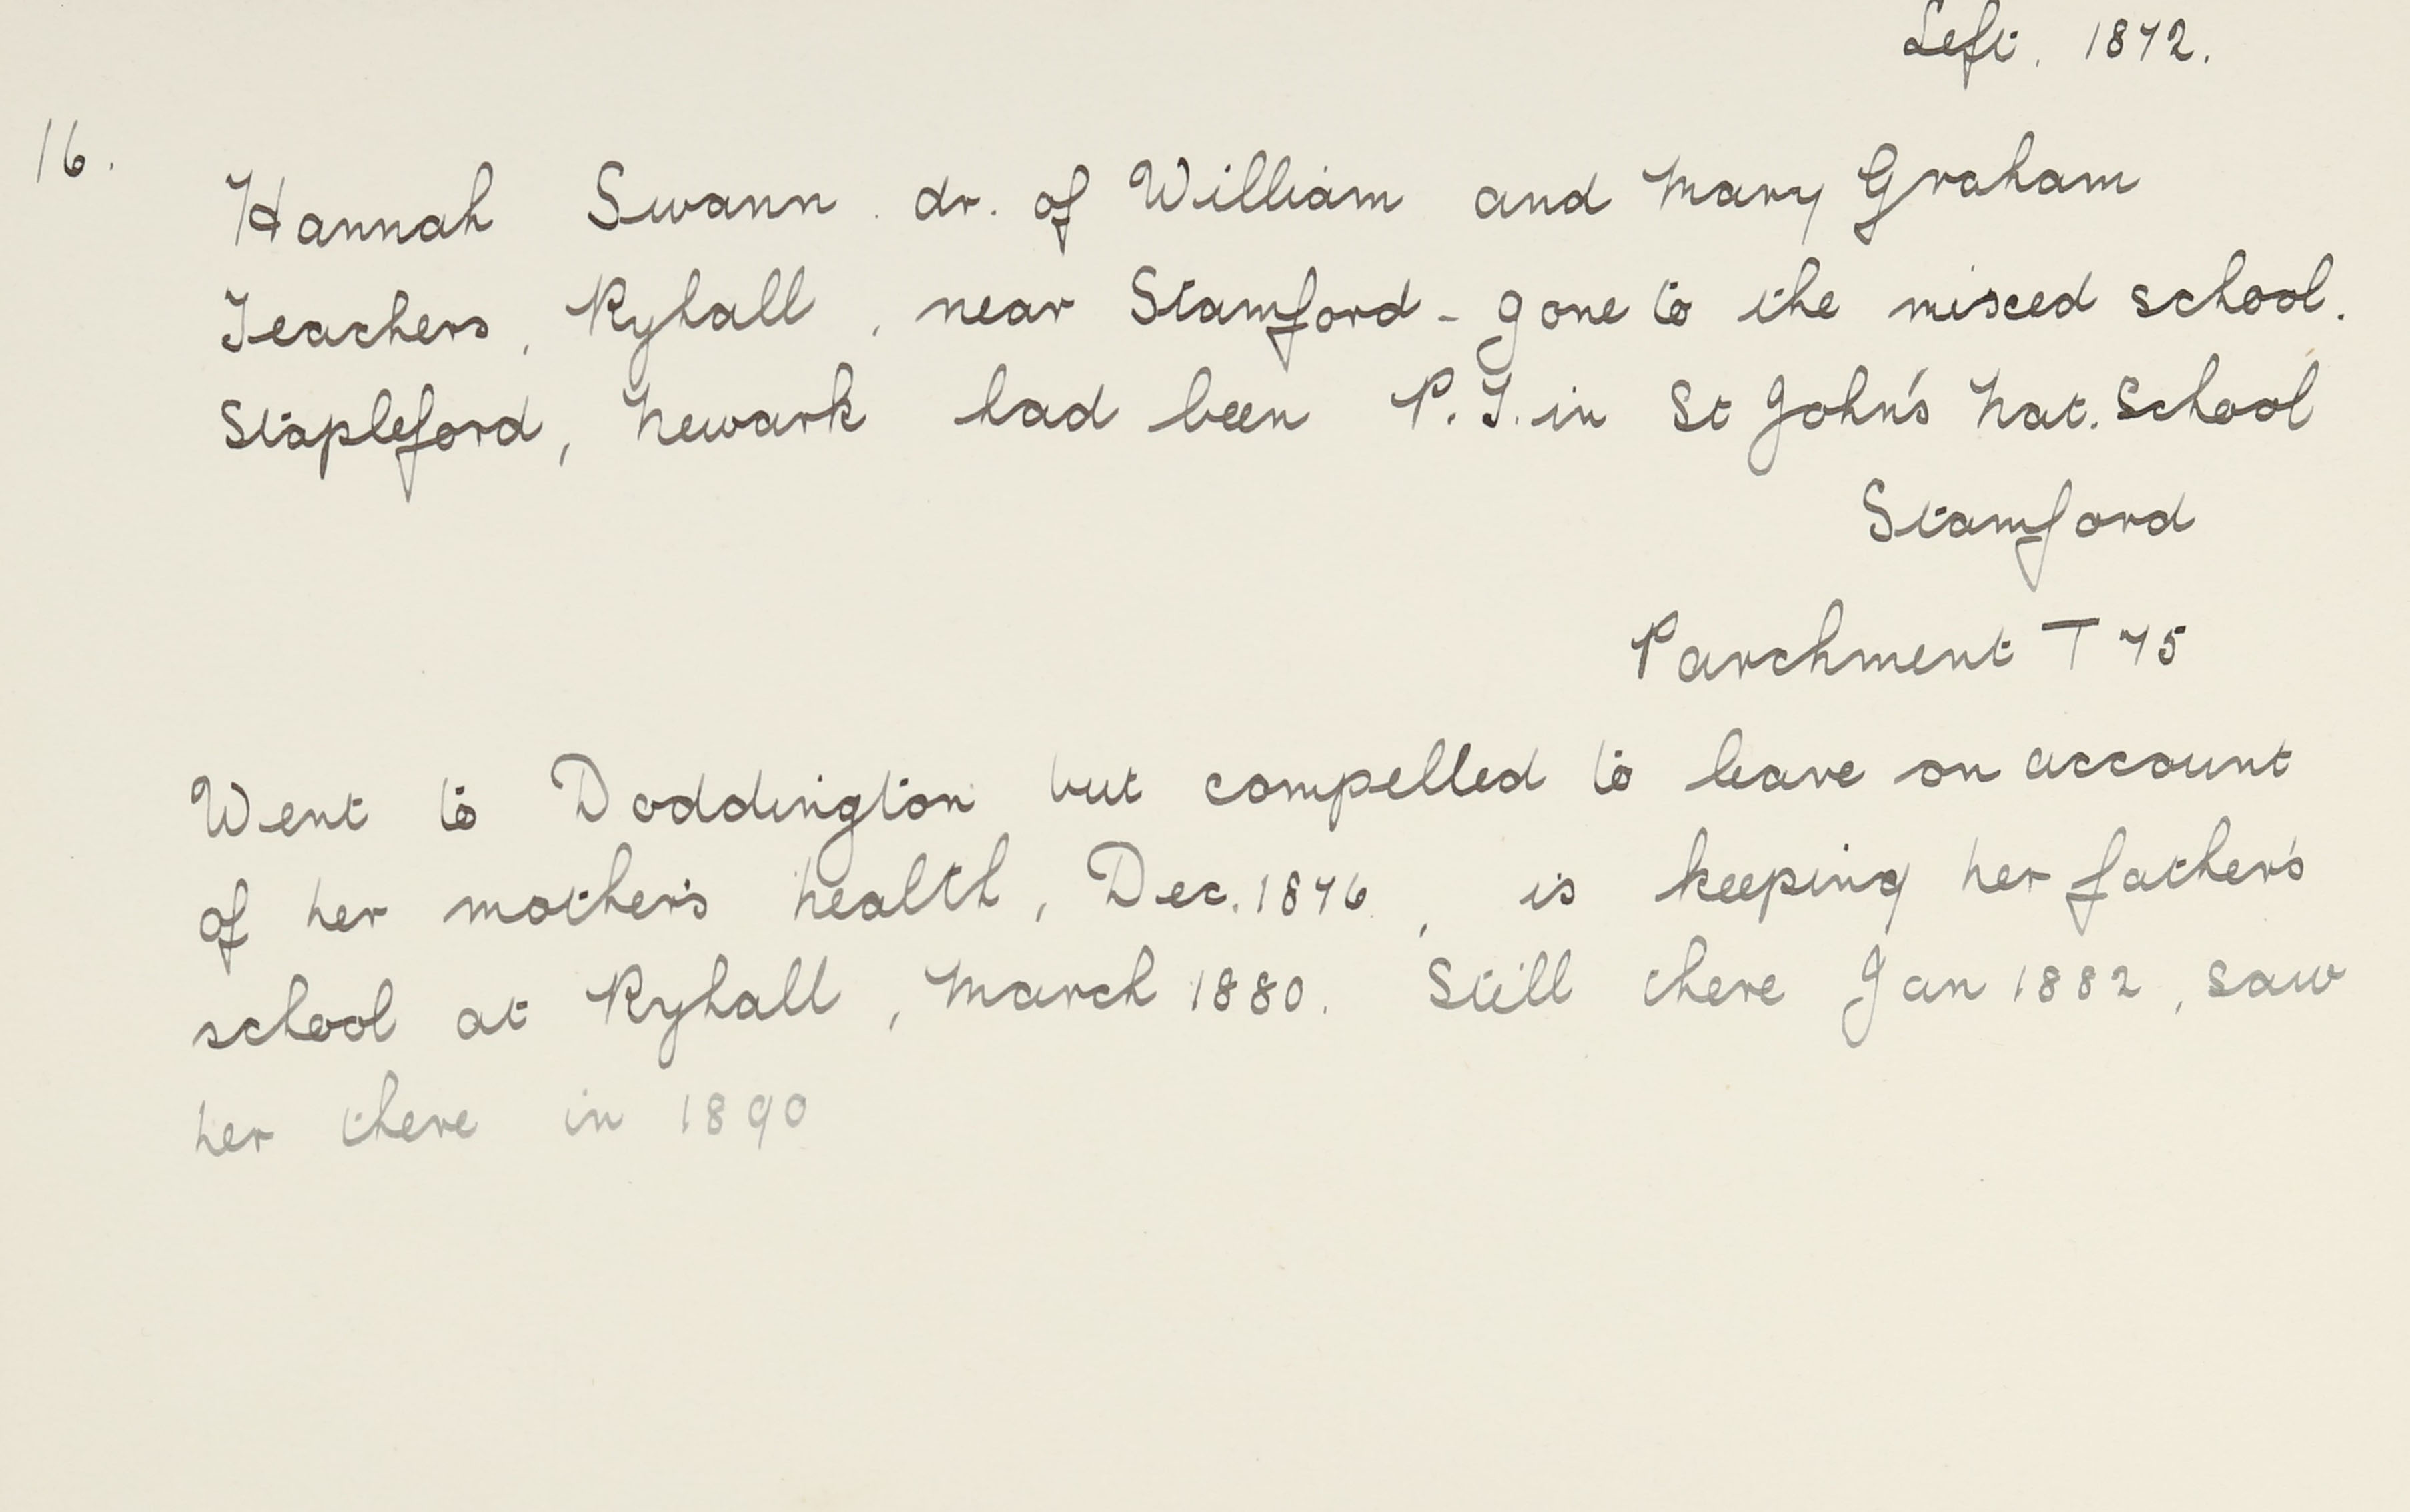 Left. 1872.
16.
Hannah Swann. dr. of William and Mary Graham
Teachers, Ryhall, near Stamford - gone to the mixed school.
Stapleford, Newark had been P.T. in St John's Nat. School
Stamford
Parchment T 75
Went to Doddington but compelled to leave on account
of her mother's health, Dec. 1876, is keeping her father's
school at Ryhall, March 1880. Still there Jan 1882, saw
her there in 1890